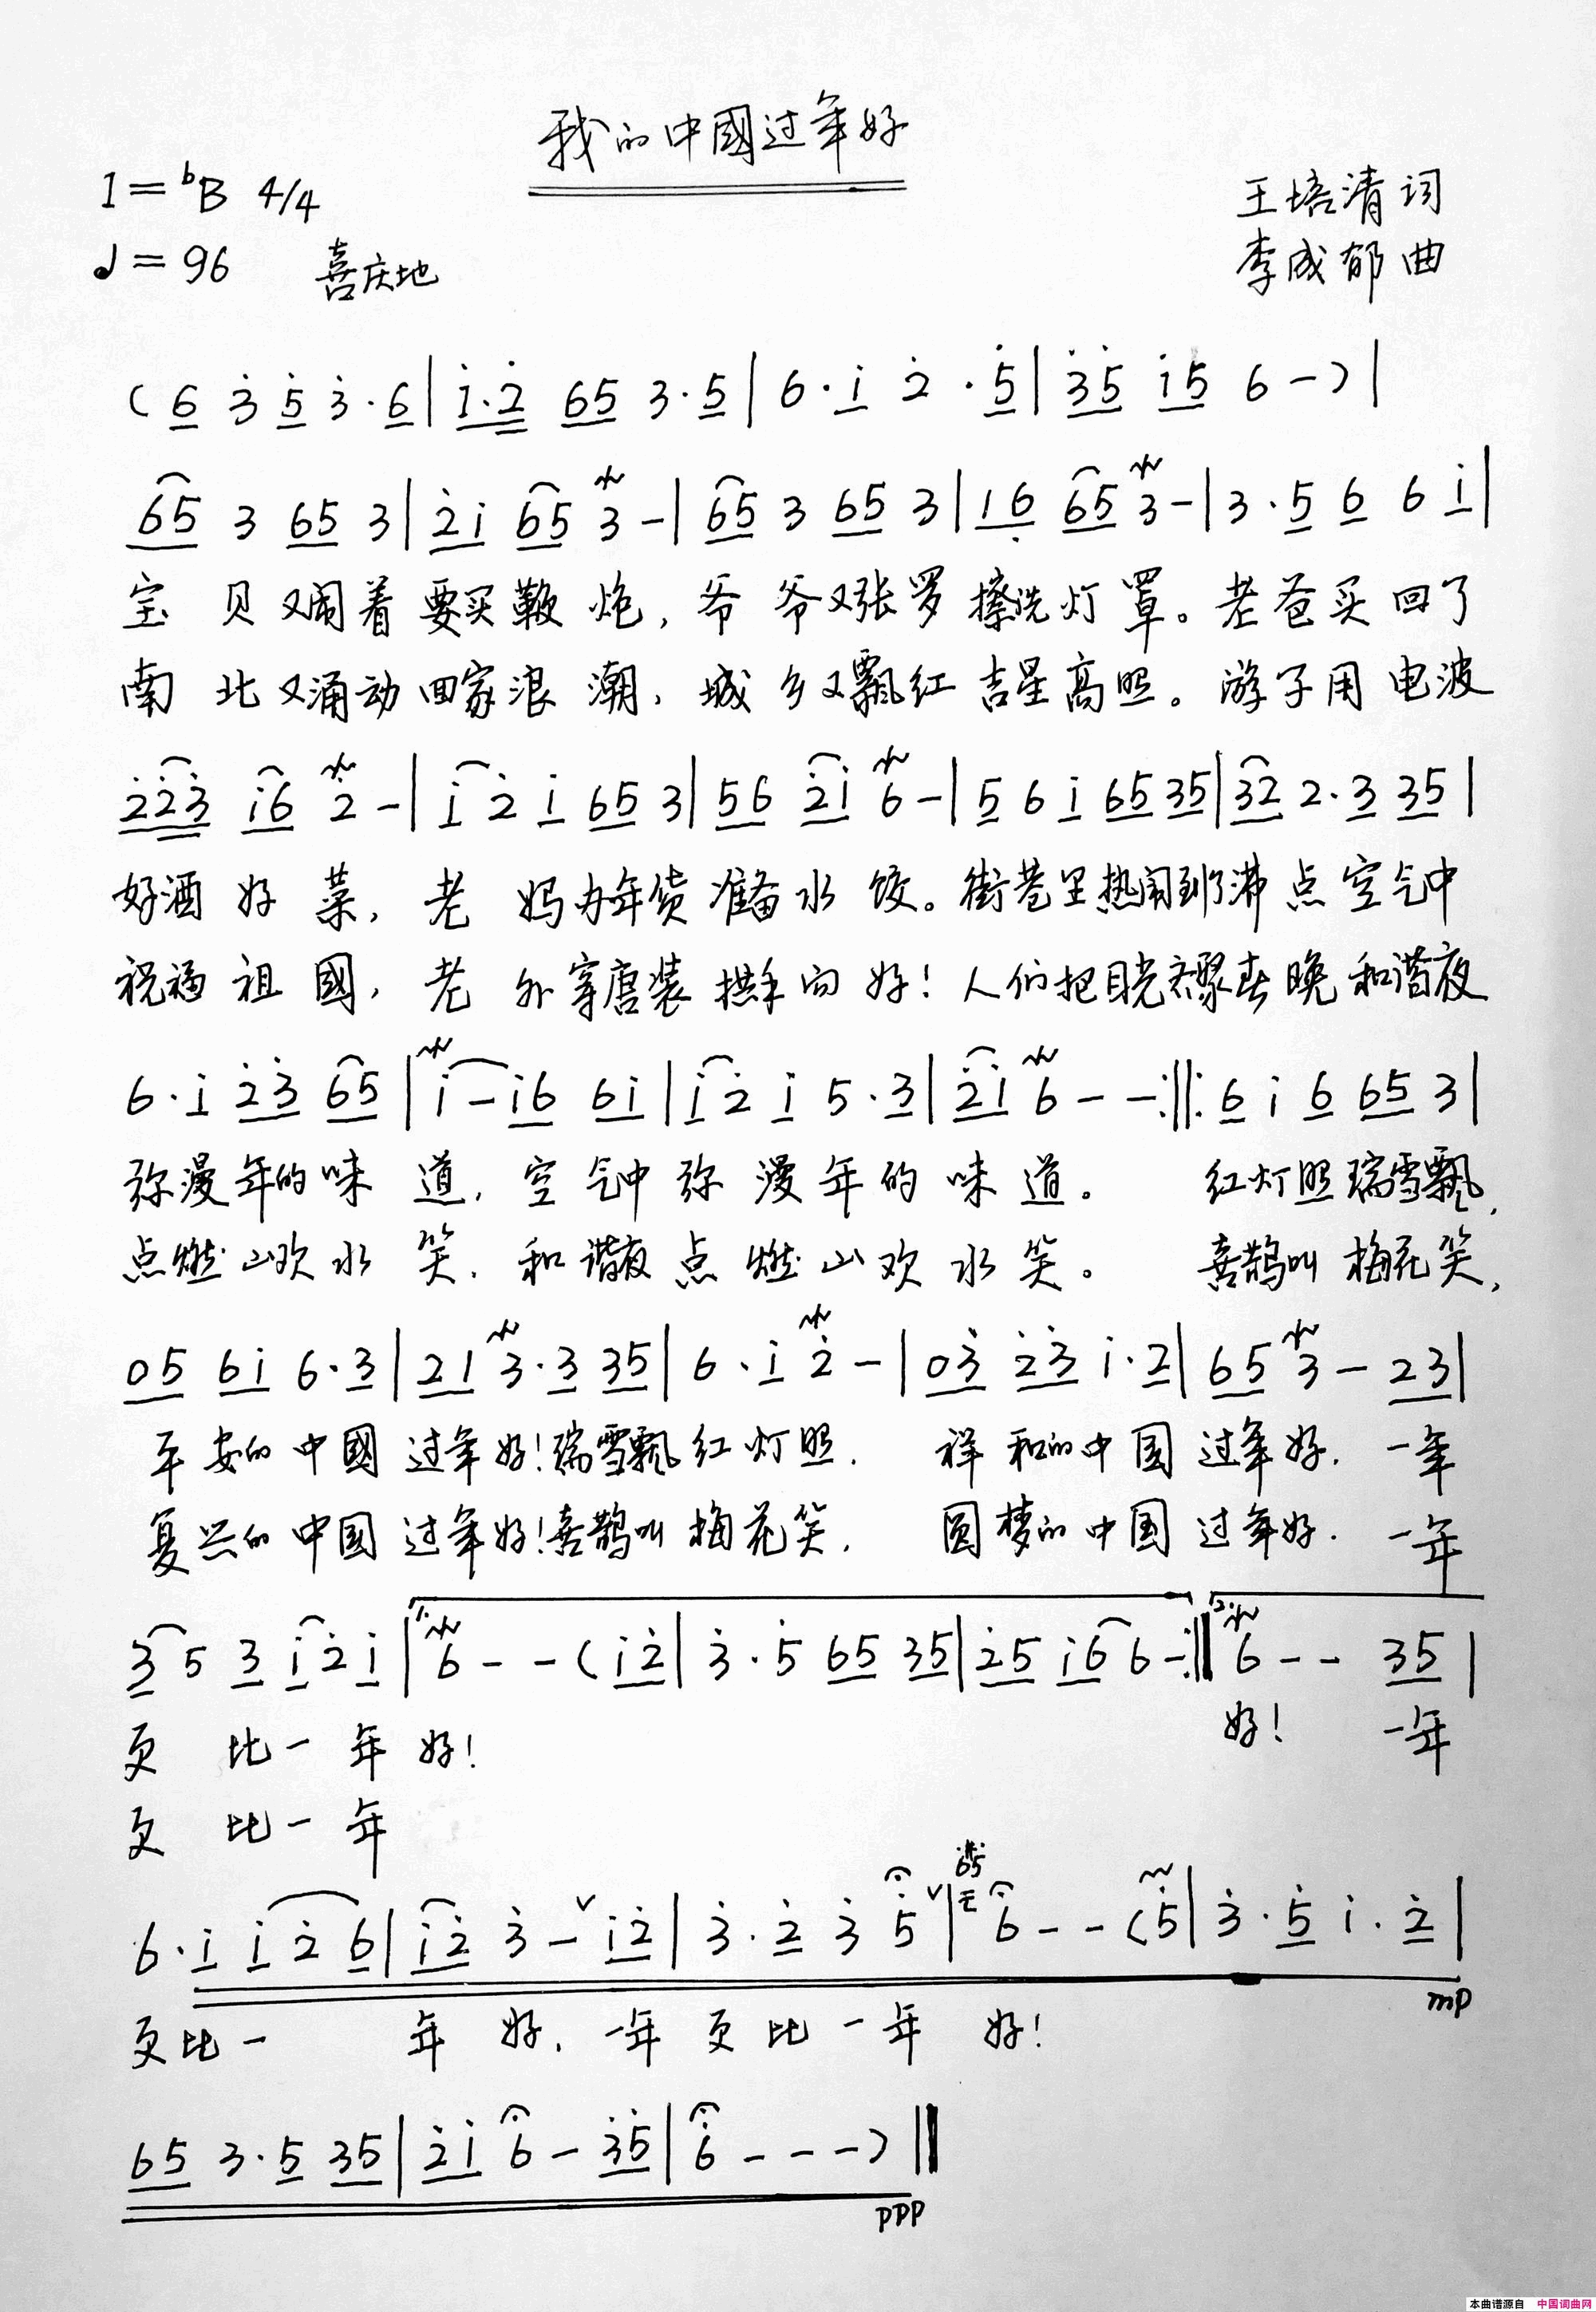 我的中國过年好
1=ᵇB 4/4
王培清 词
♩=96 喜庆地
李成郁 曲
(6 3̇ 5̇ 3̇·6|1̇·2̇ 65 3·5|6·1̇ 2̇·5̇|3̇5̇ 1̇5 6-)|
65 3 65 3|2̇1̇ 65 3-|65 3 65 3|16̣ 65 3-|3·5 6 6 1̇|
宝 贝又闹着要买鞭炮,爷爷又张罗擦洗灯罩。老爸买回了
南 北又涌动回家浪潮,城乡又飘红吉星高照。游子用电波
2̇2̇3̇ 1̇6 2̇-|1̇ 2̇ 1̇ 65 3|56 2̇1̇ 6-|5 6 1̇ 65 35|32 2·3 35|
好酒好菜,老 妈办年货准备水饺。街巷里热闹到了沸点空气中
祝福祖國,老 外穿唐装拱手问好!人们把目光聚春晚和谐夜
6·1̇ 2̇3̇ 65|1̇-1̇6 61̇|1̇ 2̇ 1̇ 5·3|2̇1̇ 6--:‖:6 1̇ 6 65 3|
弥漫年的味道,空气中弥漫年的味道。 红灯照瑞雪飘,
点燃山欢水笑,和谐夜点燃山欢水笑。 喜鹊叫梅花笑,
05 61̇ 6·3|21 3·3 35|6·1̇ 2̇-|03̇ 2̇3̇ 1̇·2|65 3-23|
平安的中國过年好!瑞雪飘红灯照. 祥和的中国过年好.一年
复兴的中国过年好!喜鹊叫梅花笑. 圆梦的中国过年好.一年
3 5 3 1̇ 2̇ 1̇|1. 6--(1̇2̇|3̇·5̇ 65 35|2̇5 1̇6 6-:‖2. 6--35|
更 比一年好! 好! 一年
更 比一年
6·1̇ 1̇ 2̇ 6|1̇2̇ 3̇-1̇2̇|3̇·2̇ 3̇ 5̇|65 6--(5̇|3̇·5̇ 1̇·2̇|
mp
更比一 年好.一年更比一年好!
65 3·5 35|2̇1̇ 6-3̇5̇|6̇---)‖
ppp
本曲谱源自 中国词曲网